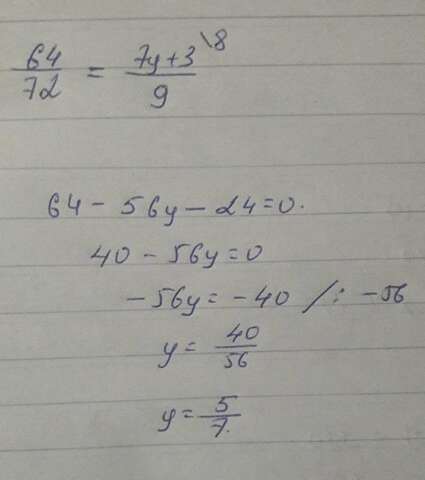 64/72 = 7y+3/9 \8
64 - 56y - 24 = 0.
40 - 56y = 0
-56y = -40 /: -56
y = 40/56
y = 5/7.